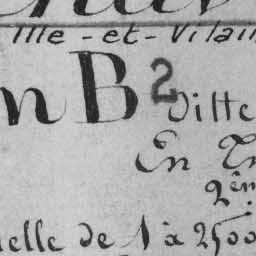 Ille-et-Vilain
n B2 ditte
En Tr
2èm
elle de 1 à 2500